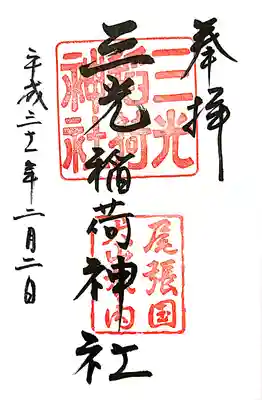 奉拝
三光稲荷神社
平成三十一年二月二日
三光
稲荷
神社
尾張国
犬山城内